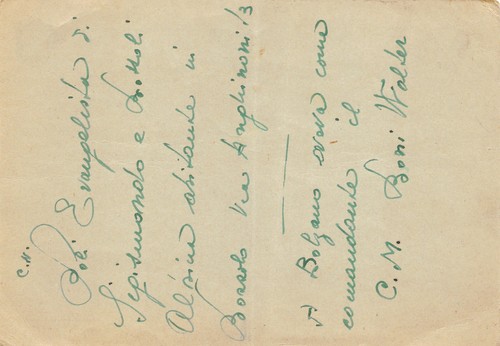 C.M.
Poli Evangelista di
Sigismondo e Zottoli
Alsina abitante in
Bozzolo Via Arghinoni 13
A Bolzano aveva come
comandante il
C.M. Boni Walter